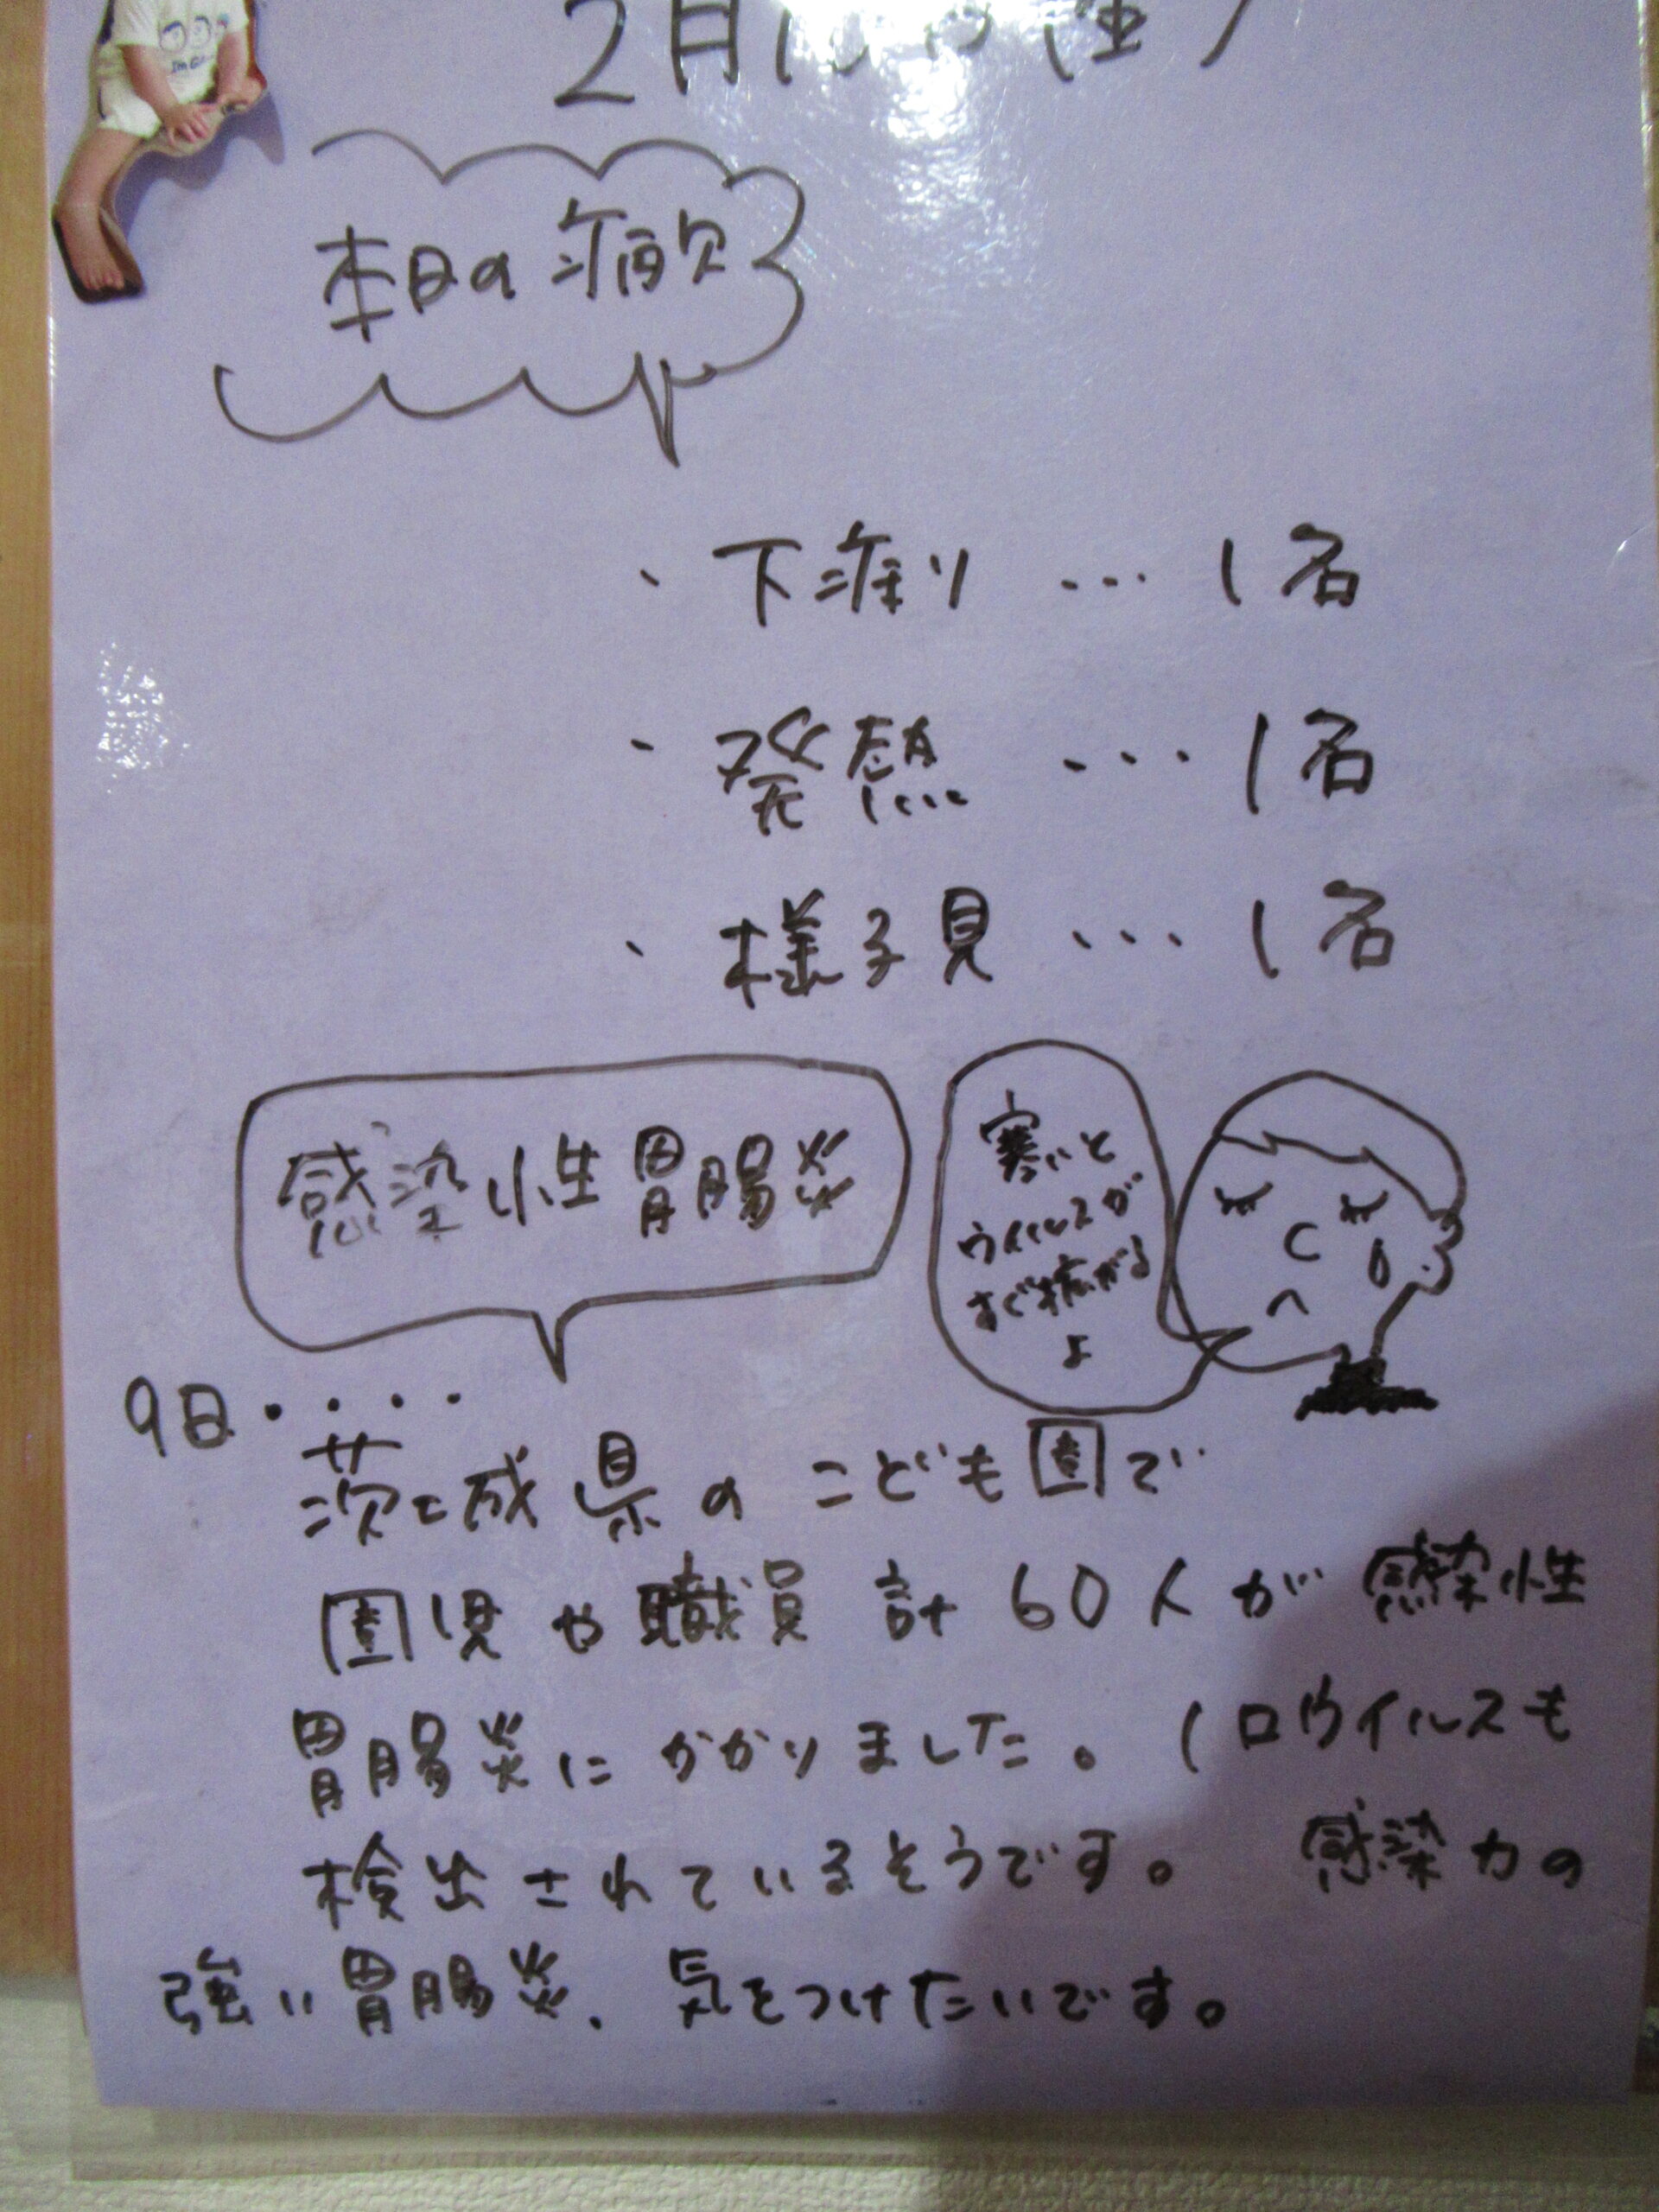 2月
本日の病欠
・下痢り…1名
・発熱…1名
・様子見…1名
感染性胃腸炎
寒いと
ウイルスが
すぐ拡がる
よ
9日・・・・
茨城県のこども園で
園児や職員計60人が感染性
胃腸炎にかかりました。(ロウイルスも
検出されているそうです。感染力の
強い胃腸炎、気をつけたいです。